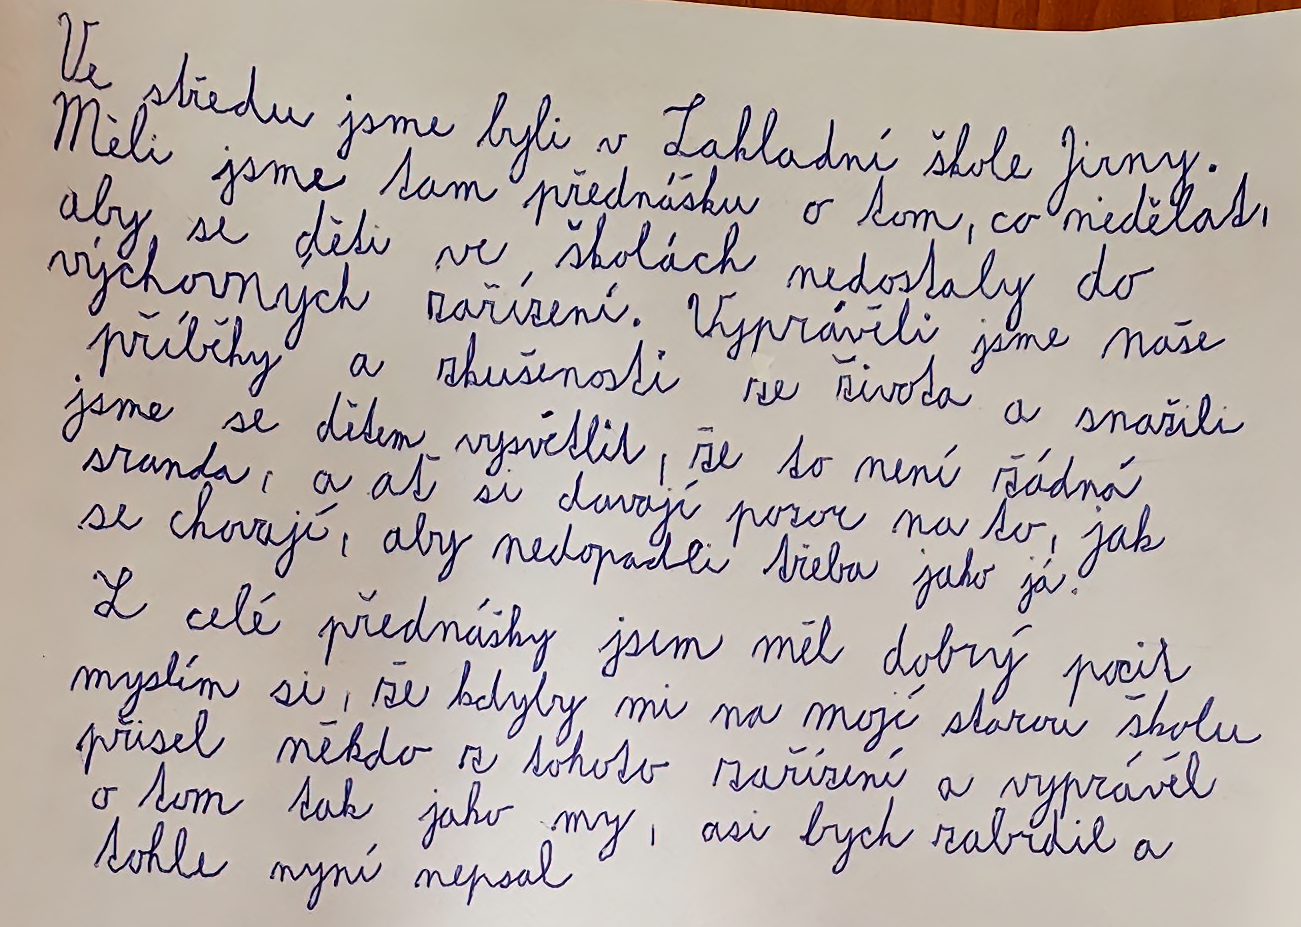 Ve středu jsme byli v Zakladní škole Jirny.
Měli jsme tam přednášku o tom, co nedělat,
aby se děti ve školách nedostaly do
výchovných zařízení. Vyprávěli jsme naše
příběhy a zkušenosti ze života a snažili
jsme se dětem vysvětlit, že to není žádná
sranda, a ať si davají pozor na to, jak
se chovají, aby nedopadli třeba jako já.
Z celé přednášky jsem měl dobrý pocit
myslím si, že kdyby mi na mojí starou školu
přisel někdo z tohoto zařízení a vyprávěl
o tom tak jako my, asi bych zabrdil a
tohle nyní nepsal